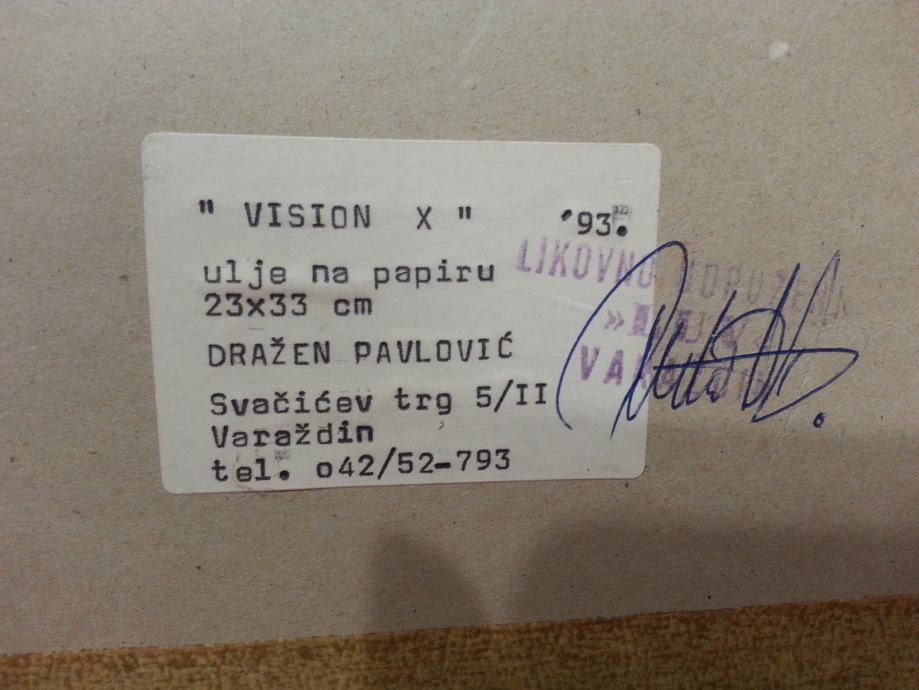 " VISION X " '93.
ulje na papiru
23x33 cm
DRAŽEN PAVLOVIĆ
Svačićev trg 5/II
Varaždin
tel. o42/52-793
LIKOVNO